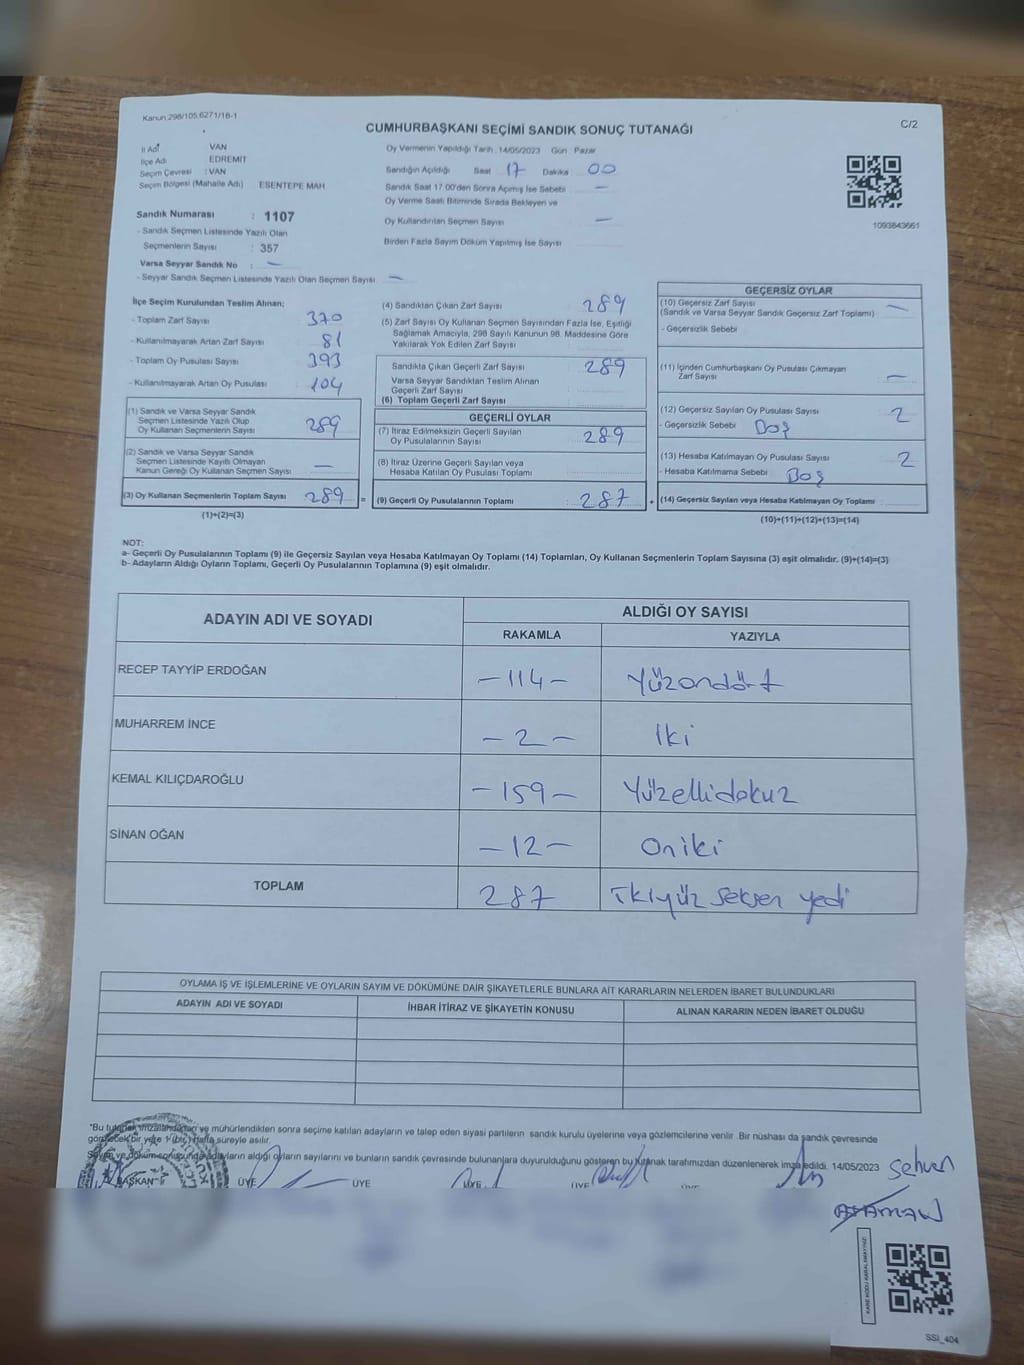 Kanun.298/105,6271/18-1
CUMHURBAŞKANI SEÇİMİ SANDIK SONUÇ TUTANAĞI
C/2
İl Adı : VAN
İlçe Adı : EDREMIT
Seçim Çevresi : VAN
Seçim Bölgesi (Mahalle Adı) ESENTEPE MAH
Sandık Numarası : 1107
- Sandık Seçmen Listesinde Yazılı Olan
Seçmenlerin Sayısı : 357
Varsa Seyyar Sandık No : —
- Seyyar Sandık Seçmen Listesinde Yazılı Olan Seçmen Sayısı —
Oy Vermenin Yapıldığı Tarih : 14/05/2023 Gün : Pazar
Sandığın Açıldığı Saat 17 Dakika 00
Sandık Saat 17.00'den Sonra Açımış İse Sebebi —
Oy Verme Saati Bitiminde Sırada Bekleyen ve
Oy Kullandırılan Seçmen Sayısı —
Birden Fazla Sayım Döküm Yapılmış İse Sayısı
1093843661
İlçe Seçim Kurulundan Teslim Alınan;
- Toplam Zarf Sayısı 370
- Kullanılmayarak Artan Zarf Sayısı 81
- Toplam Oy Pusulası Sayısı 393
- Kullanılmayarak Artan Oy Pusulası 104
(1) Sandık ve Varsa Seyyar Sandık
Seçmen Listesinde Yazılı Olup
Oy Kullanan Seçmenlerin Sayısı 289
(2) Sandık ve Varsa Seyyar Sandık
Seçmen Listesinde Kayıtlı Olmayan
Kanun Gereği Oy Kullanan Seçmen Sayısı —
(3) Oy Kullanan Seçmenlerin Toplam Sayısı 289 =
(1)+(2)=(3)
(4) Sandıktan Çıkan Zarf Sayısı 289
(5) Zarf Sayısı Oy Kullanan Seçmen Sayısından Fazla İse, Eşitliği
Sağlamak Amacıyla, 298 Sayılı Kanunun 98. Maddesine Göre
Yakılarak Yok Edilen Zarf Sayısı
Sandıkta Çıkan Geçerli Zarf Sayısı 289
Varsa Seyyar Sandıktan Teslim Alınan
Geçerli Zarf Sayısı
(6) Toplam Geçerli Zarf Sayısı
GEÇERLİ OYLAR
(7) İtiraz Edilmeksizin Geçerli Sayılan
Oy Pusulalarının Sayısı 289
(8) İtiraz Üzerine Geçerli Sayılan veya
Hesaba Katılan Oy Pusulası Toplamı
(9) Geçerli Oy Pusulalarının Toplamı : 287 +
GEÇERSİZ OYLAR
(10) Geçersiz Zarf Sayısı —
(Sandık ve Varsa Seyyar Sandık Geçersiz Zarf Toplamı)
- Geçersizlik Sebebi
(11) İçinden Cumhurbaşkanı Oy Pusulası Çıkmayan
Zarf Sayısı —
(12) Geçersiz Sayılan Oy Pusulası Sayısı 2
- Geçersizlik Sebebi Boş
(13) Hesaba Katılmayan Oy Pusulası Sayısı 2
- Hesaba Katılmama Sebebi Boş
(14) Geçersiz Sayılan veya Hesaba Katılmayan Oy Toplamı
(10)+(11)+(12)+(13)=(14)
NOT:
a- Geçerli Oy Pusulalarının Toplamı (9) ile Geçersiz Sayılan veya Hesaba Katılmayan Oy Toplamı (14) Toplamları, Oy Kullanan Seçmenlerin Toplam Sayısına (3) eşit olmalıdır. (9)+(14)=(3)
b- Adayların Aldığı Oyların Toplamı, Geçerli Oy Pusulalarının Toplamına (9) eşit olmalıdır.
ADAYIN ADI VE SOYADI ALDIĞI OY SAYISI
RAKAMLA YAZIYLA
RECEP TAYYİP ERDOĞAN —114— Yüzondört
MUHARREM İNCE —2— İki
KEMAL KILIÇDAROĞLU —159— Yüzellidokuz
SİNAN OĞAN —12— Oniki
TOPLAM 287 İkiyüz seksen yedi
OYLAMA İŞ VE İŞLEMLERİNE VE OYLARIN SAYIM VE DÖKÜMÜNE DAİR ŞİKAYETLERLE BUNLARA AİT KARARLARIN NELERDEN İBARET BULUNDUKLARI
ADAYIN ADI VE SOYADI İHBAR İTİRAZ VE ŞİKAYETİN KONUSU ALINAN KARARIN NEDEN İBARET OLDUĞU
"Bu tutanak imzalandıktan ve mühürlendikten sonra seçime katılan adayların ve talep eden siyasi partilerin sandık kurulu üyelerine veya gözlemcilerine verilir. Bir nüshası da sandık çevresinde
görülecek bir yere 1 (bir) hafta süreyle asılır.
Sayım ve döküm sonucunda adayların aldığı oyların sayılarını ve bunların sandık çevresinde bulunanlara duyurulduğunu gösteren bu tutanak tarafımızdan düzenlenerek imza edildi. 14/05/2023
BAŞKAN ÜYE ÜYE ÜYE ÜYE
KARE KODU KARALAMAYINIZ!
SSİ_404